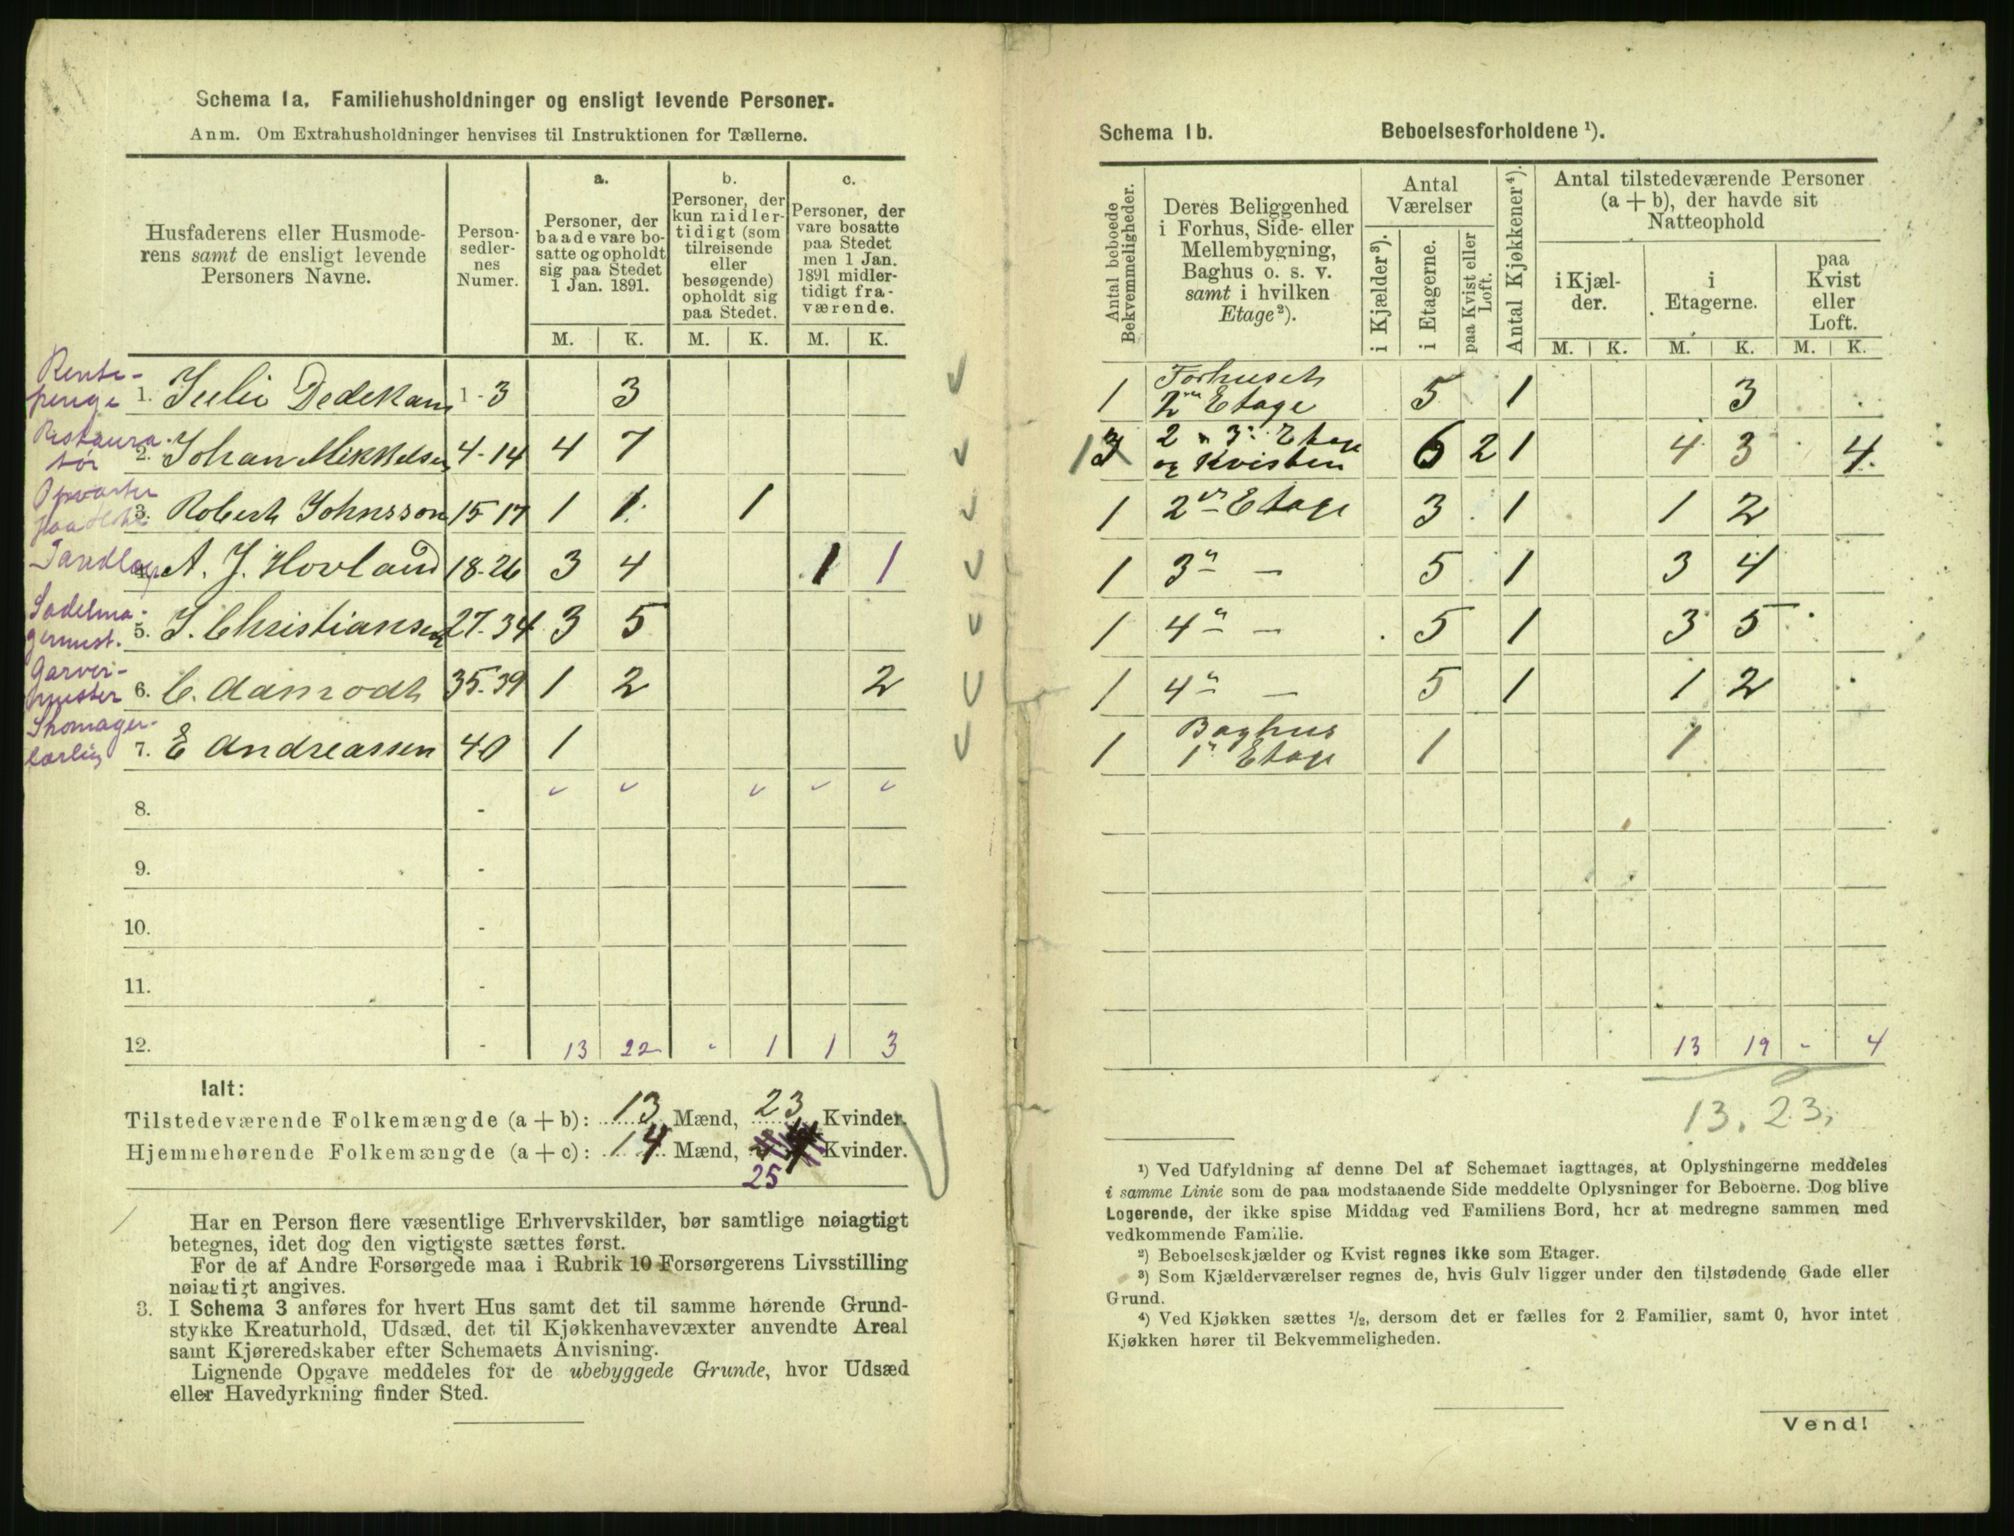 Schema 1a. Familiehusholdninger og ensligt levende Personer.
Anm. Om Extrahusholdninger henvises til Instruktionen for Tællerne.
Husfaderens eller Husmoderens samt de ensligt levende Personers Navne.
Person-sedlernes Numer.
a. Personer, der baade vare bosatte og opholdt sig paa Stedet 1 Jan. 1891.
b. Personer, der kun midlertidigt (som tilreisende eller besøgende) opholdt sig paa Stedet.
c. Personer, der vare bosatte paa Stedet men 1 Jan. 1891 midlertidigt fraværende.
M. K. M. K. M. K.
Rentepenge 1. Julie Dedekam 1-3 3
Restauratør 2. Johan Mikkelsen 4-14 4 7
Opvarter 3. Robert Johnsson 15-17 1 1 1
Tandlæge 4. A. J. Hovland 18-26 3 4 1 1
Sadelmagermest. 5. J. Christiansen 27-34 3 5
Garvermester 6. C. Aamodt 35-39 1 2 2
Skomager 7. E Andreassen 40 1
8. -
9. -
10. -
11. -
12. - 13 22 - 1 1 3
Ialt:
Tilstedeværende Folkemængde (a + b): 13 Mænd, 23 Kvinder.
Hjemmehørende Folkemængde (a + c): 14 Mænd, Kvinder.
25
Har en Person flere væsentlige Erhvervskilder, bør samtlige nøiagtigt
betegnes, idet dog den vigtigste sættes først.
For de af Andre Forsørgede maa i Rubrik 10 Forsørgerens Livsstilling
nøiagtigt angives.
3. I Schema 3 anføres for hvert Hus samt det til samme hørende Grund-
stykke Kreaturhold, Udsæd, det til Kjøkkenhavevæxter anvendte Areal
samt Kjøreredskaber efter Schemaets Anvisning.
Lignende Opgave meddeles for de ubebyggede Grunde, hvor Udsæd
eller Havedyrkning finder Sted.
Schema 1b. Beboelsesforholdene ¹).
Antal beboede Bekvemmeligheder.
Deres Beliggenhed i Forhus, Side- eller Mellembygning, Baghus o. s. v. samt i hvilken Etage²).
Antal Værelser
i Kjælder³). i Etagerne. paa Kvist eller Loft.
Antal Kjøkkener⁴).
Antal tilstedeværende Personer (a + b), der havde sit Natteophold
i Kjælder. i Etagerne. paa Kvist eller Loft.
M. K. M. K. M. K.
1 Forhuset 2den Etage 5 1 3
1 3 2 n 3die Etage og Kvisten 6 2 1 4 3 4
1 2den Etage 3 1 1 2
1 3" — 5 1 3 4
1 4" — 5 1 3 5
1 4" — 5 1 1 2
1 Baghus 1" Etage 1 1
13 19 - 4
13. 23.
¹) Ved Udfyldning af denne Del af Schemaet iagttages, at Oplysningerne meddeles
i samme Linie som de paa modstaaende Side meddelte Oplysninger for Beboerne. Dog blive
Logerende, der ikke spise Middag ved Familiens Bord, her at medregne sammen med
vedkommende Familie.
²) Beboelseskjælder og Kvist regnes ikke som Etager.
³) Som Kjælderværelser regnes de, hvis Gulv ligger under den tilstødende Gade eller
Grund.
⁴) Ved Kjøkken sættes ½, dersom det er fælles for 2 Familier, samt 0, hvor intet
Kjøkken hører til Bekvemmeligheden.
Vend!